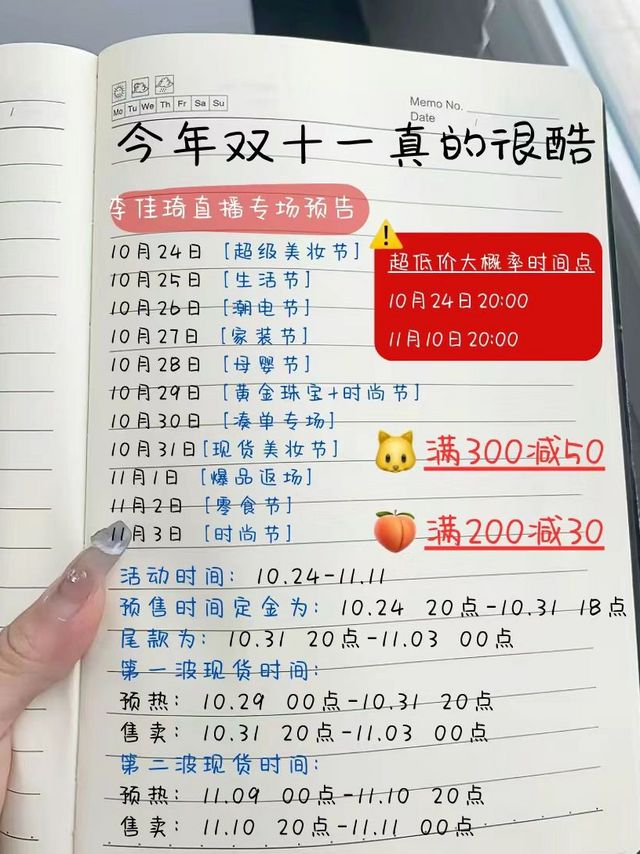 Mo Tu We Th Fr Sa Su
Memo No.
Date /
今年双十一真的很酷
李佳琦直播专场预告
10月24日 [超级美妆节]
10月25日 [生活节]
10月26日 [潮电节]
10月27日 [家装节]
10月28日 [母婴节]
10月29日 [黄金珠宝+时尚节]
10月30日 [凑单专场]
10月31日[现货美妆节]
11月1日 [爆品返场]
11月2日 [零食节]
11月3日 [时尚节]
超低价大概率时间点
10月24日20:00
11月10日20:00
满300减50
满200减30
活动时间: 10.24-11.11
预售时间定金为: 10.24 20点-10.31 18点
尾款为: 10.31 20点-11.03 00点
第一波现货时间:
预热: 10.29 00点-10.31 20点
售卖: 10.31 20点-11.03 00点
第二波现货时间:
预热: 11.09 00点-11.10 20点
售卖: 11.10 20点-11.11 00点